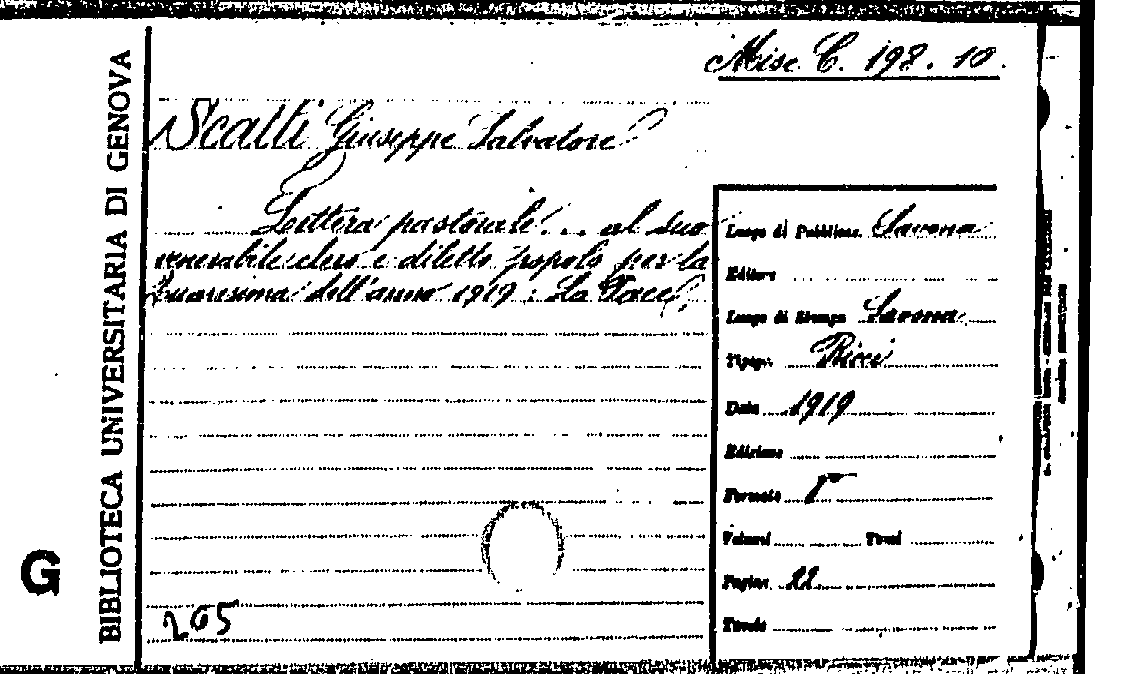 Misc. C. 198. 10.
Scatti Giuseppe Salvatore
Lettera pastorale... al suo
venerabile clero e diletto popolo per la
Quaresima dell'anno 1919: La Pace.
205
BIBLIOTECA UNIVERSITARIA DI GENOVA
G
Luogo di Pubblicaz. Savona
Editore
Luogo di Stampa Savona
Tipogr. Ricci
Data 1919
Edizione
Formato
Volumi Tomi
Pagine 22
Tavole